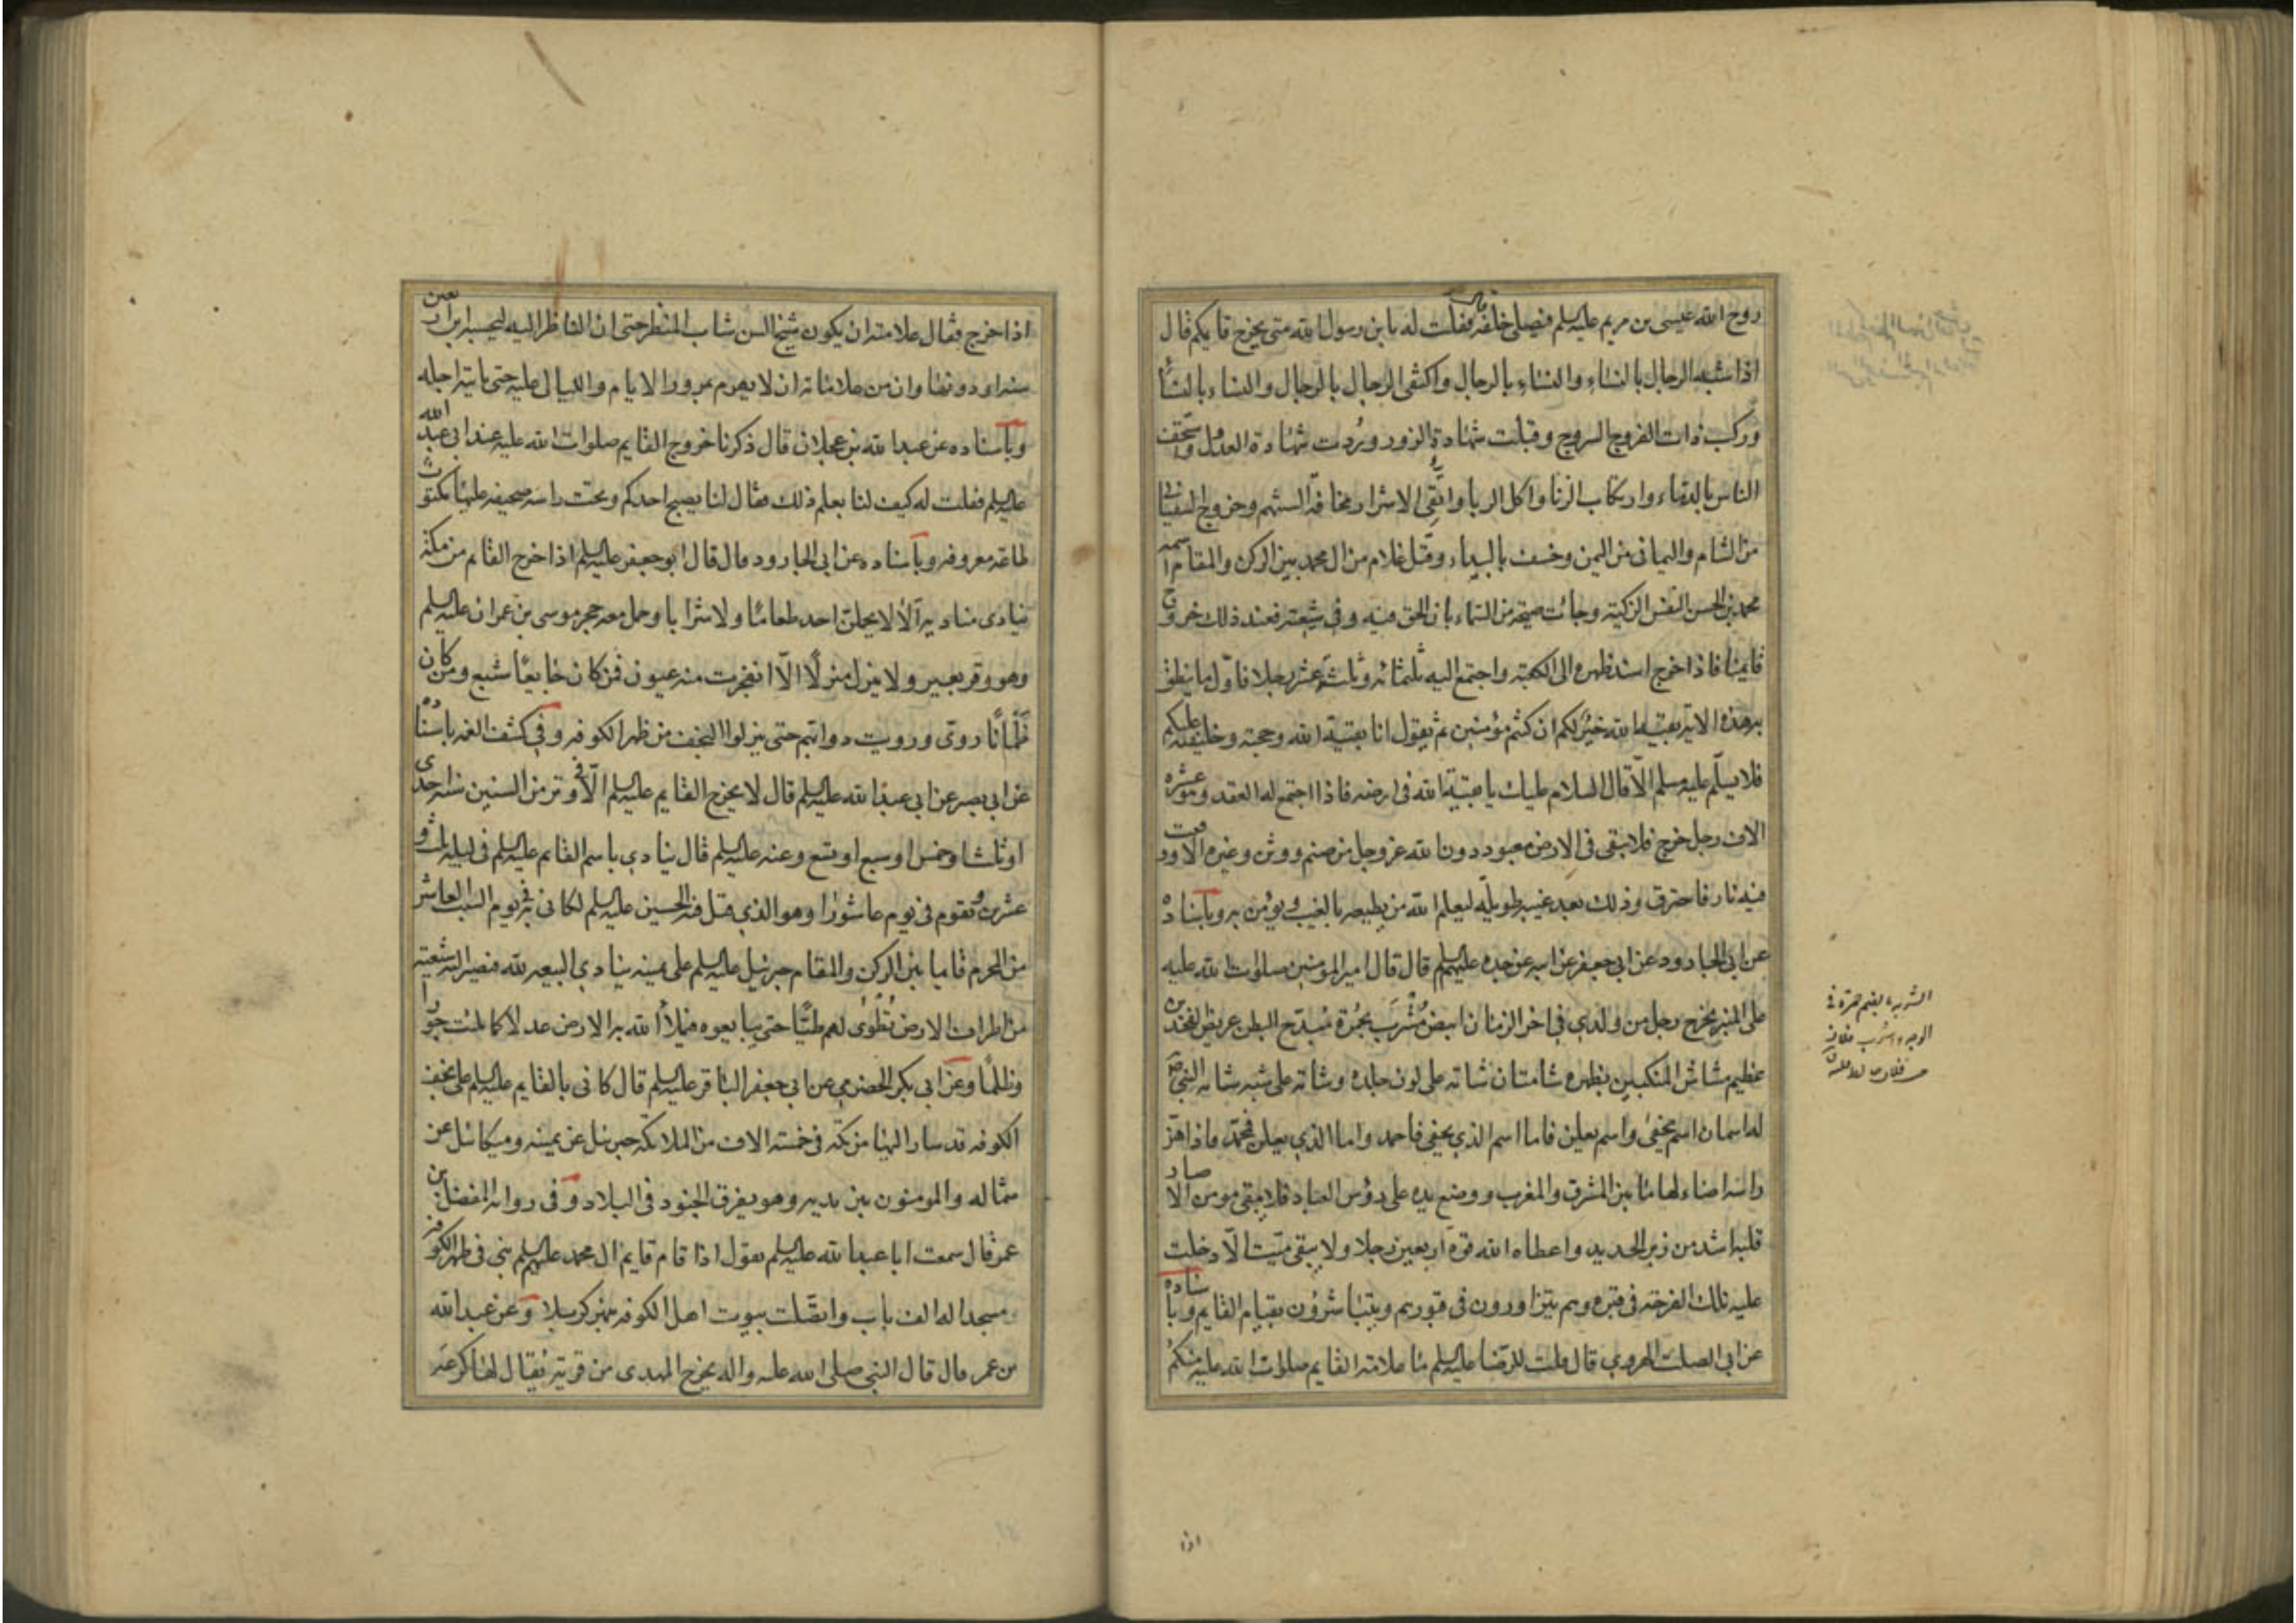 روح الله عيسى بن مريم عليه السلم فيصلي خلفه قال فقلت له يا بن رسول الله متى يخرج قايمكم قال
اذا شبه الرجال بالنساء والنساء بالرجال واكتفى الرجال بالرجال والنساء بالنساء
وركب ذات الفروج السروج وقبلت شهادة الزور وردت شهادة العدول واستخف
الناس بالدماء وارتكاب الزنا واكل الربا واتقي الاشرار مخافة السنتهم وخروج السفياني
من الشام واليماني من اليمن وخسف بالبيداء وقتل غلام من ال محمد بين الركن والمقام اسمه
محمد بن الحسن النفس الزكية وجائت صيحة من السماء بان الحق فيه وفي شيعته فعند ذلك خروج
قايمنا فاذا خرج اسند ظهره الى الكعبة واجتمع اليه ثلثمائه وثلثة عشر رجلا فاول ما ينطق
به هذه الاية بقية الله خير لكم ان كنتم مؤمنين ثم يقول انا بقية الله وحجته وخليفته عليكم
فلا يسلم عليه مسلم الا قال السلام عليك يا بقية الله في ارضه فاذا اجتمع له العقد وهو عشرة
الاف رجل خرج فلا يبقى في الارض معبود دون الله عز وجل من صنم ووثن وغيره الا وقعت
فيه نار فاحترق وذلك بعد غيبة طويلة ليعلم الله من يطيعه بالغيب ويؤمن به وباسناده
عن ابي الجارود عن ابي جعفر عن ابيه عن جده عليهم السلم قال قال امير المؤمنين صلوات الله عليه
على المنبر يخرج رجل من ولدي في اخر الزمان ابيض مشرب بحمرة مبدح البطن عريض الفخذين
عظيم مشاش المنكبين بظهره شامتان شامة على لون جلده وشامة على شبه شامة النبي ص
له اسمان اسم يخفى واسم يعلن فاما اسم الذي يخفى فاحمد واما الذي يعلن فمحمد فاذا هز
رايته اضاء لها ما بين المشرق والمغرب ووضع يده على رؤس العباد فلا يبقى مومن الا صار
قلبه اشد من زبر الحديد واعطاه الله قوة اربعين رجلا ولا يبقى ميت الا دخلت
عليه تلك الفرحة في قبره وهم يتزاورون في قبورهم ويتباشرون بقيام القايم وباسناده
عن ابي الصلت الهروي قال قلت للرضا عليه السلم ما علامة القايم صلوات الله عليه منكم
اذا
اذا خرج فقال علامته ان يكون شيخ السن شاب المنظر حتى ان الناظر اليه ليحسبه ابن اربعين
سنه او دونها وان من علاماته ان لا يهرم بمرور الايام والليالي عليه حتى ياتيه اجله
وباسناده عن عبد الله بن عجلان قال ذكرنا خروج القايم صلوات الله عليه عند ابي عبد الله
عليه السلم فقلت له كيف لنا بعلم ذلك فقال لنا يصبح احدكم وتحت راسه صحيفه عليها مكتوب
طاعة معروفه وباسناده عن ابي الجارود قال قال ابو جعفر عليه السلم اذا خرج القائم من مكة
ينادي مناديه الا لا يحملن احد طعاما ولا شرابا وحمل معه حجر موسى بن عمران عليه السلم
وهو وقر بعير ولا ينزل منزلا الا انفجرت منه عيون فمن كان جايعا شبع ومن كان
ظمانا روى ورويت دوابهم حتى ينزلوا النجف من ظهر الكوفه وفي كشف الغمه باسناده
عن ابي بصير عن ابي عبد الله عليه السلم قال لا يخرج القايم عليه السلم الا في وتر من السنين سنة احدى
او ثلث او خمس او سبع او تسع وعنه عليه السلم قال ينادي باسم القايم عليه السلم في ليلة ثلث و
عشرين ويقوم في يوم عاشورا وهو الذي قتل فيه الحسين عليه السلم لكاني به في يوم السبت العاشر
من المحرم قايما بين الركن والمقام جبرئيل عليه السلم على يمينه ينادي البيعه لله فتصير اليه شيعته
من اطراف الارض تطوى لهم طيا حتى يبايعوه فيملأ الله به الارض عدلا كما ملئت جورا
وظلما وعن ابي بكر الحضرمي عن ابي جعفر الباقر عليه السلم قال كاني بالقايم عليه السلم على نجف
الكوفه قد سار اليها من مكة في خمسة الاف من الملائكة جبرئيل عن يمينه وميكائيل عن
شماله والمومنون بين يديه وهو يفرق الجنود في البلاد وفي رواية المفضل بن
عمر قال سمعت ابا عبد الله عليه السلم يقول اذا قام قايم ال محمد عليهم السلم بنى في ظهر الكوفه
مسجدا له الف باب واتصلت بيوت اهل الكوفه بنهر كربلا وعن عبد الله
بن عمر قال قال النبي صلى الله عليه واله يخرج المهدى من قرية يقال لها كرعه